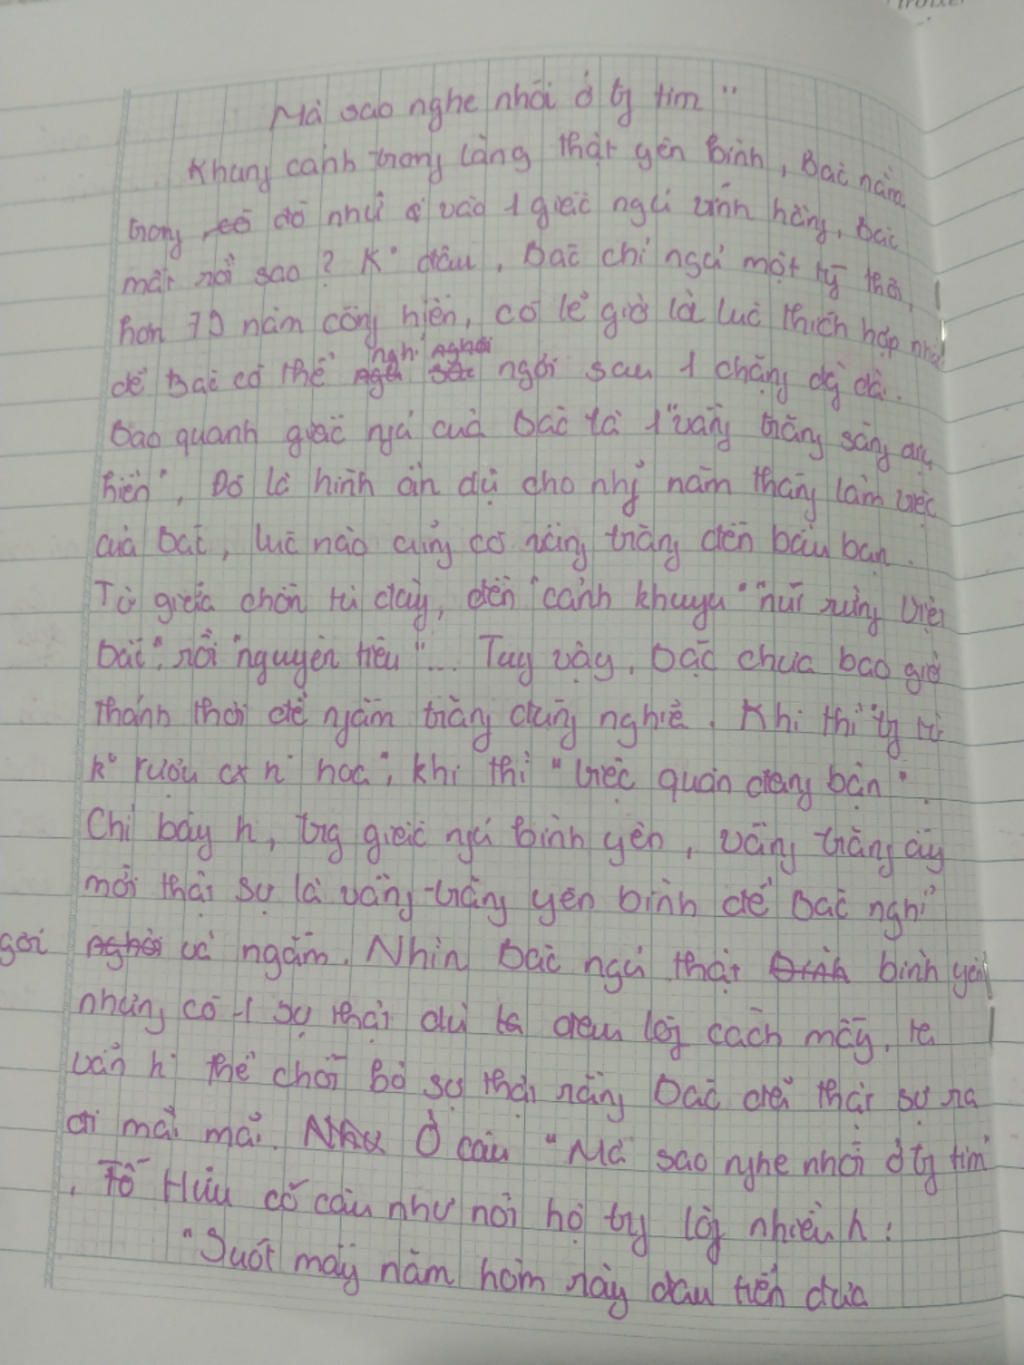 Mà sao nghe nhói ở tg tim"
Khung cảnh trong lăng thật yên bình, Bác nằm
trong đó như vào 1 giấc ngủ vĩnh hằng, Bác
mất rồi sao? K° đâu, Bác chỉ ngủ một tý thôi,
hơn 70 năm cống hiến, có lẽ giờ là lúc thích hợp nhất
để Bác có thể nghỉ ngơi sau 1 chặng dg dài.
Bao quanh giấc ngủ của Bác là 1 "vầng trăng sáng dịu
hiền". Đó là hình ẩn dụ cho nhg năm tháng làm việc
của Bác, lúc nào cũng có vầng trăng đến bầu bạn.
Từ giữa chốn tù đày, đến "cảnh khuya" "núi rừng Việt
Bắc", rồi "nguyên tiêu"... Tuy vậy, Bác chưa bao giờ
thảnh thơi để ngắm trăng đúng nghĩa. Khi thì "tg tù
k° rượu cx k° hoa", khi thì "việc quân đang bận".
Chỉ bây h, trg giấc ngủ bình yên, vầng trăng ấy
mới thật sự là vầng trăng yên bình để Bác nghỉ
gơi và ngắm. Nhìn Bác ngủ thật bình yên
nhưng có 1 sự thật dù ta đau lòg cách mấy, ta
vẫn k° thể chối bỏ sự thật rằng Bác đã thật sự ra
đi mãi mãi. Ở câu "Mà sao nghe nhói ở tg tim"
, Tố Hữu có câu như nói hộ tg lòg nhiều h:
"Suốt mấy năm hôm rày đau tiễn đưa